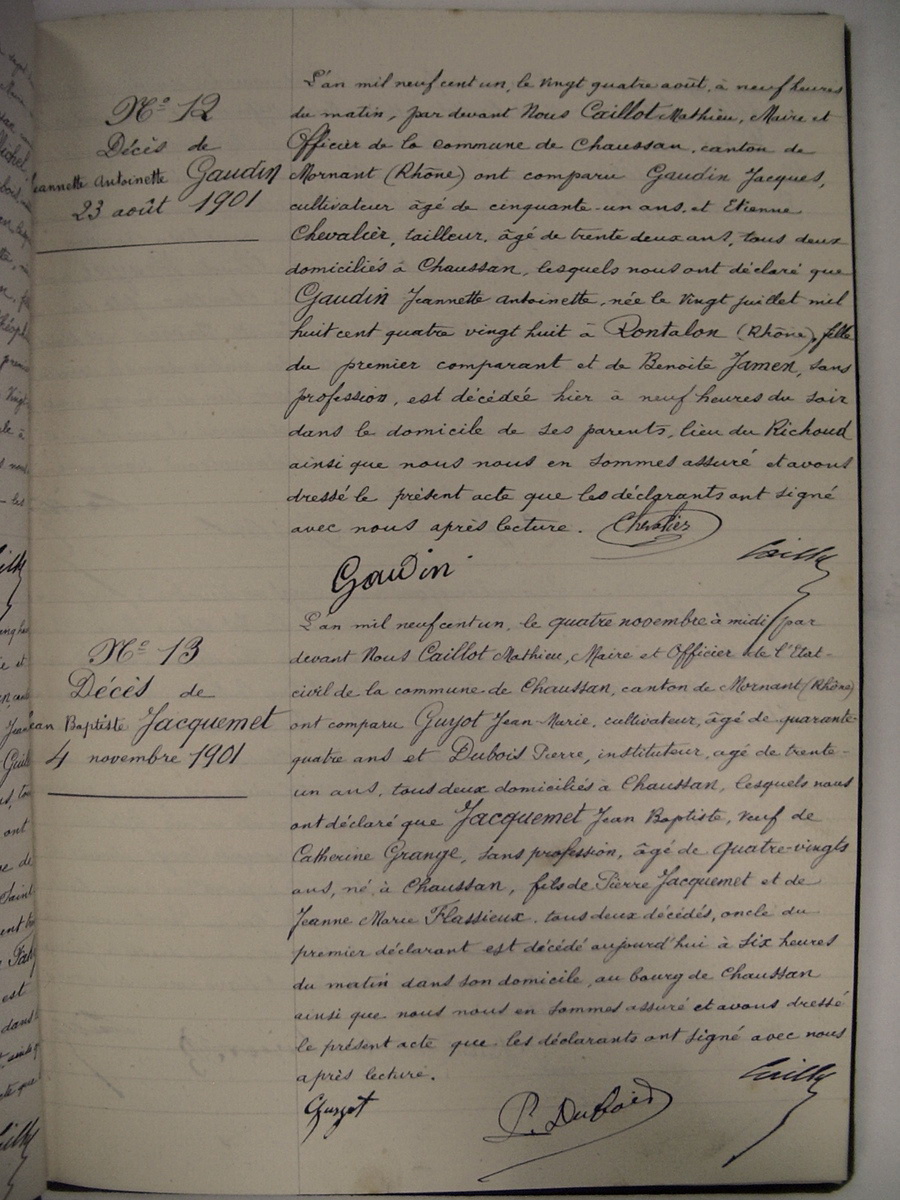 Nº 12
Décès de
Jeannette Antoinette Gaudin
23 août 1901
L'an mil neuf cent un, le vingt quatre août, à neuf heures
du matin, par devant Nous Caillot Mathieu, Maire et
Officier de la commune de Chaussan, canton de
Mornant (Rhône) ont comparu Gaudin Jacques,
cultivateur âgé de cinquante-un ans, et Etienne
Chevalier, tailleur, âgé de trente deux ans, tous deux
domiciliés à Chaussan, lesquels nous ont déclaré que
Gaudin Jeannette Antoinette, née le vingt juillet mil
huit cent quatre vingt huit à Rontalon (Rhône), fille
du premier comparant et de Benoite Jamen, sans
profession, est décédée hier à neuf heures du soir
dans le domicile de ses parents, lieu du Richoud
ainsi que nous nous en sommes assuré et avons
dressé le présent acte que les déclarants ont signé
avec nous après lecture. Chevalier
Gaudin
Nº 13
Décès de
Jean Baptiste Jacquemet
4 novembre 1901
L'an mil neuf cent un, le quatre novembre à midi, par
devant Nous Caillot Mathieu, Maire et Officier de l'Etat-
civil de la commune de Chaussan, canton de Mornant (Rhône)
ont comparu Guyot Jean-Marie, cultivateur, âgé de quarante-
quatre ans et Dubois Pierre, instituteur, âgé de trente-
un ans, tous deux domiciliés à Chaussan, lesquels nous
ont déclaré que Jacquemet Jean Baptiste, veuf de
Catherine Grange, sans profession, âgé de quatre-vingts
ans, né à Chaussan, fils de Pierre Jacquemet et de
Jeanne Marie Flassieux, tous deux décédés, oncle du
premier déclarant est décédé aujourd'hui à six heures
du matin dans son domicile au bourg de Chaussan
ainsi que nous nous en sommes assuré et avons dressé
le présent acte que les déclarants ont signé avec nous
après lecture.
Guyot
P. Dubois